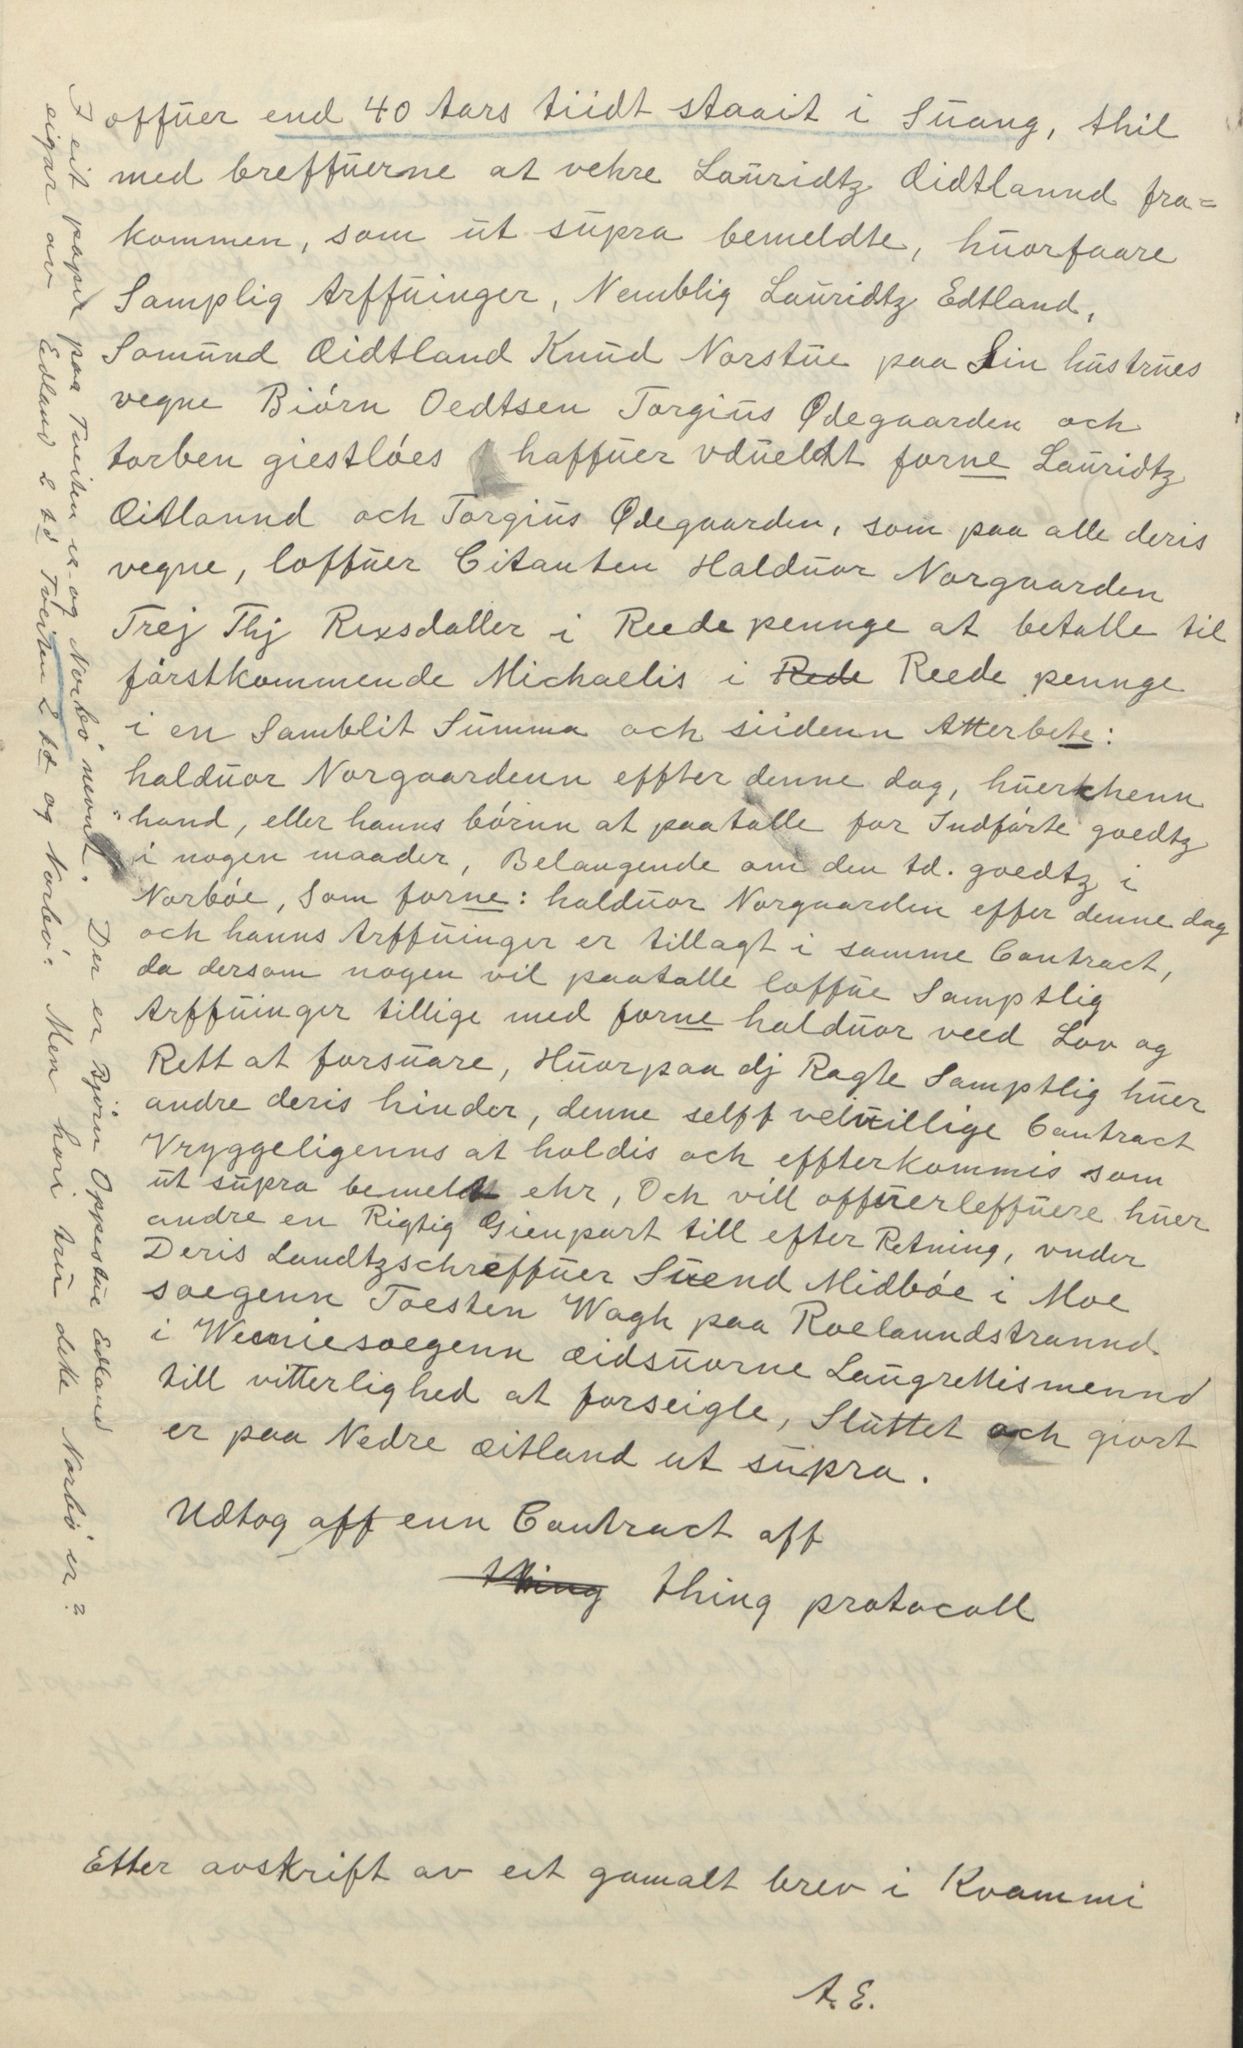 offuer end 40 Aars tiidt staait i Suang, thil
med breffuerne at vehre Lauridtz Oidtlannd fra=
kommen, som ut supra bemeldte, huorfaare
Samplig Arffuinger, Nemblig Lauridtz Edtland,
Somund Oidtland Knud Norstue paa Sin hustrues
vegne Biórn Oedtsen Torgius Ødegaarden och
torben giestlóes haffuer vdueldt forne Lauridtz
Oitlannd och Torgius Ødegaarden, som paa alle deris
vegne, loffuer Citanten Halduor Norgaarden
Trej Thj Rixsdaller i Reede pennge at betalle til
fórstkommende Michaelis i Rede Reede pennge
i en Samblit Summa och siidenn Atterbete:
halduor Norgaardenn effter denne dag, huerkhenn
hand, eller hanns bórnn at paatalle for Indfórte goedtz
i nogen maader, Belangende om den td. goedtz i
Norbóe, Som forne: halduor Norgaarden effer denne dag
och hanns Arffuinger er tillagt i samme Contract,
da dersom nogen vil paatalle loffue Samptlig
Arffuinger tillige med forne halduor veed Lov og
Rett at forsuare, Huorpaa dj Ragte Samptlig huer
andre deris hinder, denne selff veluillige Contract
Vryggeligenns at holdis och effterkommis som
ut supra bemeldt ehr, Och vill offuerleffuere huer
andre en Rigtig Gienpart till efter Retning, vnder
Deris Landtzschreffuer Suend Midbóe i Moe
soegenn Toesten Wagh paa Roelanndstrannd
i Wemiesoegenn æidsuorne Laugrettismennd
till vitterlighed at forseigle, Sluttet och giort
er paa Nedre æitland ut supra.
Udtog aff enn Contract aff
thing thing protocoll
Etter avskrift av eit gamalt brev i Kvammi
A. E.
I eit papir paa Tveiten er og Norbö nevnt. Der er Björn Oppestue Edland
eigar av Edland 2 td Tveiten 2 td og Norbö: Men hori tru dette Norbö er?